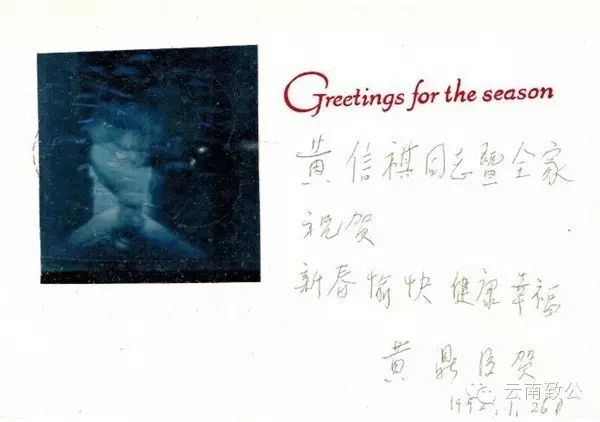 Greetings for the season
黄信祺同志暨全家
祝贺
新春愉快 健康幸福
黄鼎臣贺
云南致公
1992.1.26日